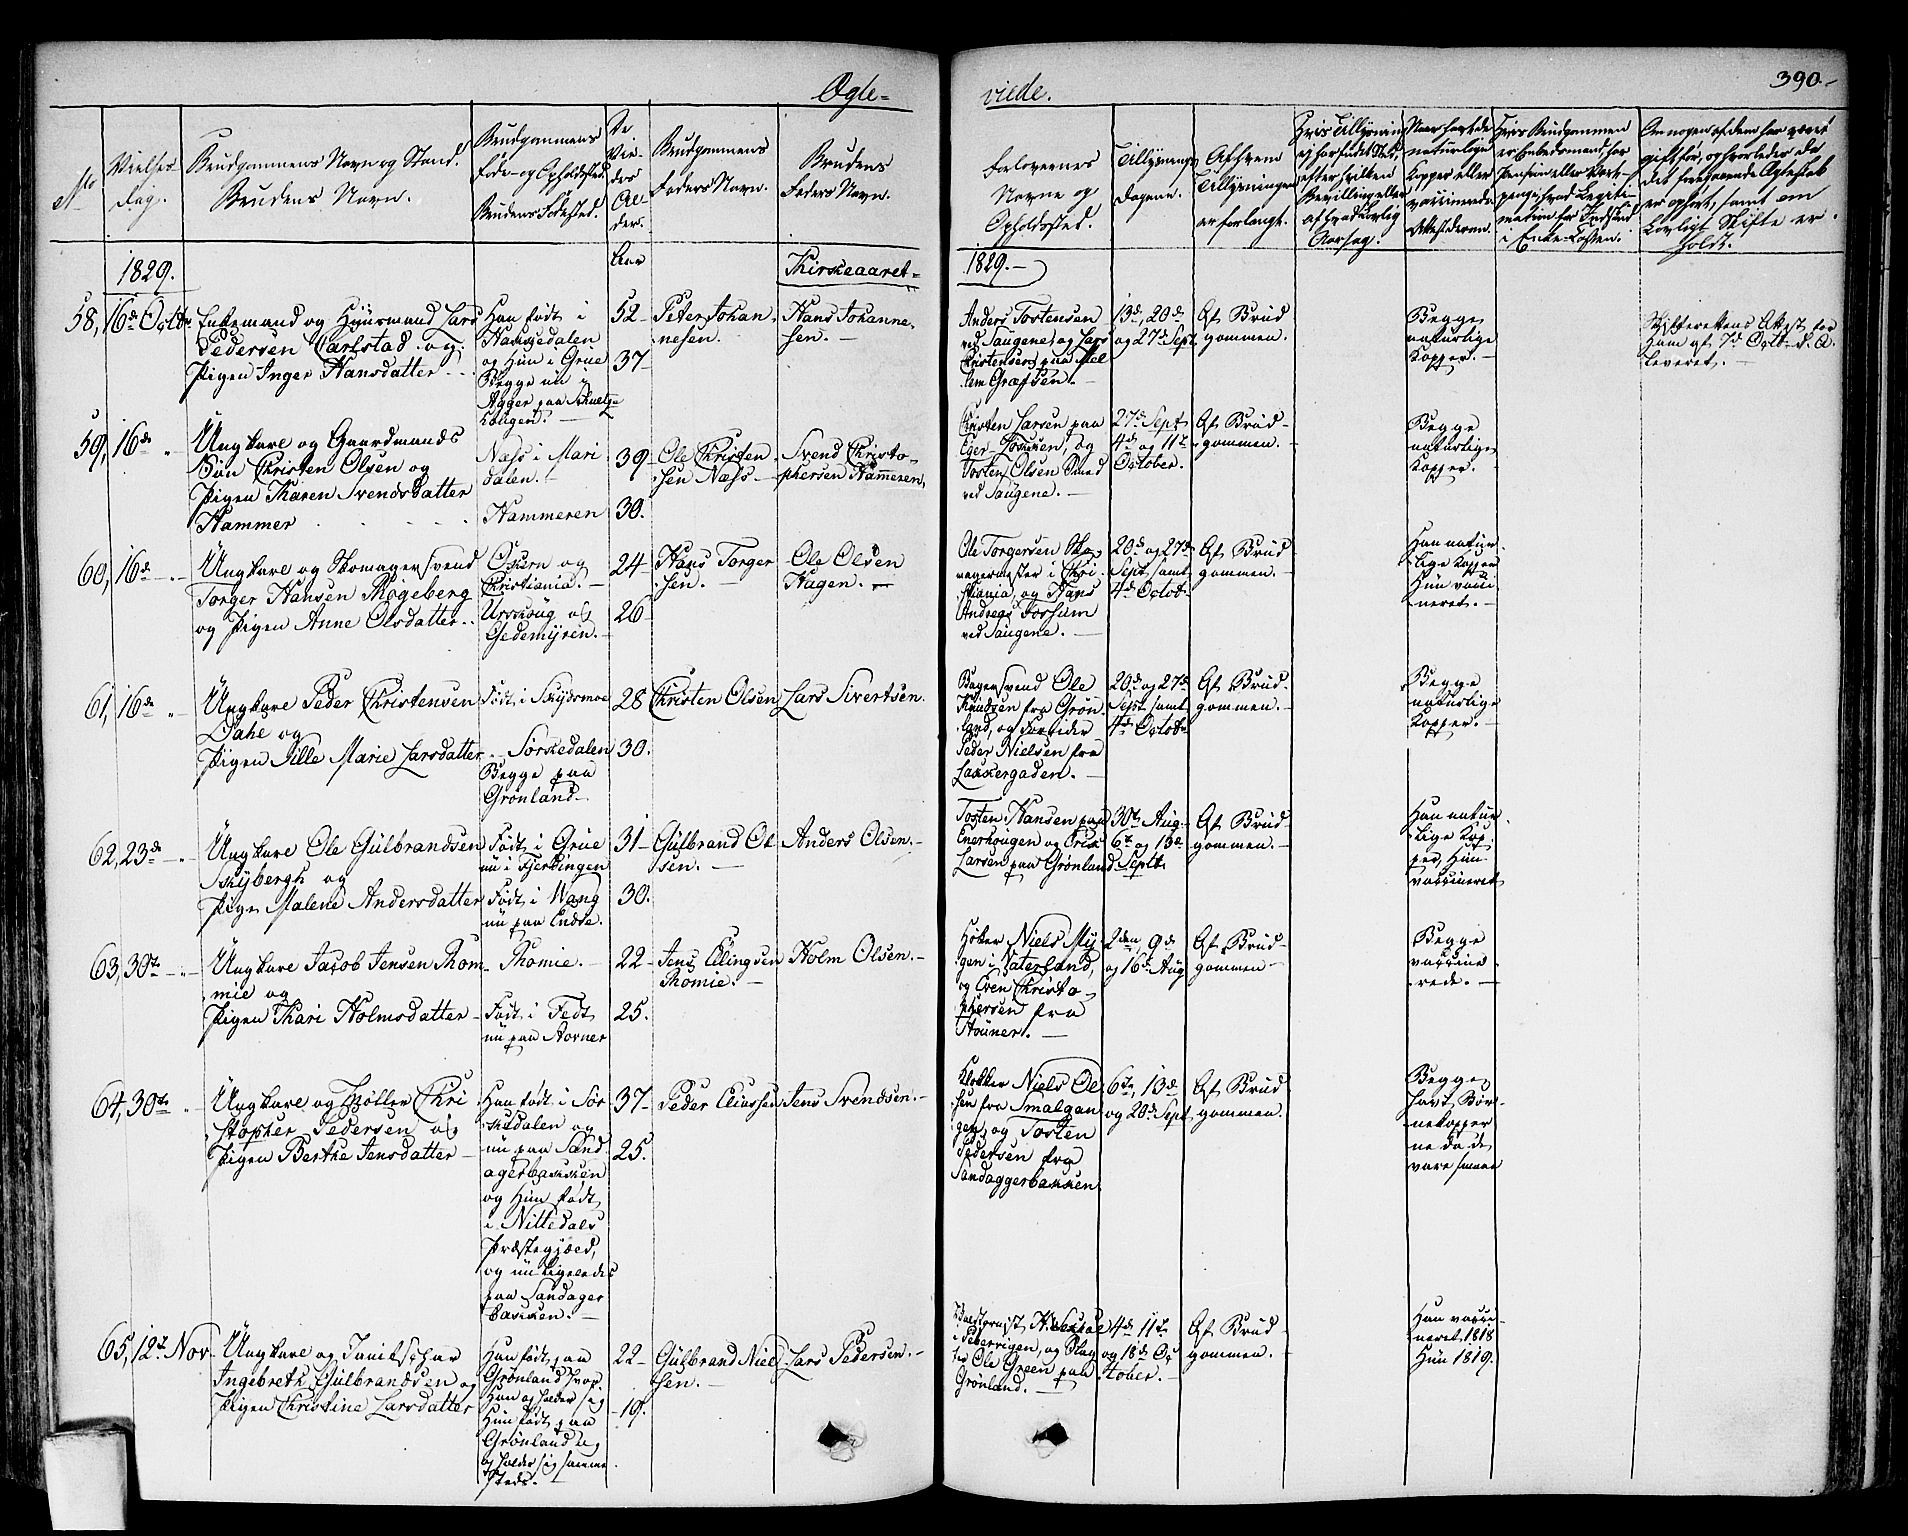 Ægte-
viede.
390.-
No
Vielses
Dag.
Brudgommens Navn og Stand.
Brudens Navn.
Brudgommens
Føde- og Opholdsted.
Brudens Fødested.
De
Vie-
des
Al-
der.
Brudgommens
Faders Navn.
Brudens
Faders Navn.
Forlovernes
Navne og
Opholdsted.
Tillysnings
Dagene.
Af hvem
Tillysningen
er forlangt.
Hvis Tillysning
ej har fundet Sted,
efter hvilken
Bevilling eller
af hvad lovlig
Aarsag.
Naar havt de
naturlige
Kopper eller
vaccinerede
Attesteren.
Hvis Brudgommen
er Embedsmand, har
Pension eller Vart-
penge, hvad Legiti-
mation for Indskud
i Enke-Kassen.
Om nogen af dem har været
gift før, og hvorledes da
det foregaaende Ægteskab
er ophørt, samt om
Lovligt Skifte er
holdt.
1829.
Aar
Kirkeaaret-
1829.-
58, 16de Octbr.
Enkemand og Huusmand Lars
Pedersen Carlstad og
Pigen Inger Hansdatter
Han født i
og Hun i Grue
Begge nu i
Agger paa
52-
37-
Peter Johan-
nesen.
Hans Johanne-
sen.-
Anders Tostensen
ved Saugene, og Lars
Christensen paa Mel
lem Græfsen.-
13de, 20de
og 27de Sept
Af Brud
gommen.
Begge
naturlige
Kopper.-
Skifterettens Attest for
Ham af 7d Octb. d. A.
leveret.-
59, 16de "
Ungkare og Gaardmands
Søn Christen Olsen og
Pigen Karen Svendsdatter
Hammer
Næss i Mari
dalen.-
Hammeren
39-
30.
Ole Christen
sen Næss-
Svend Christo-
phersen Hammeren,
Larsen paa
og
Tosten Olsen
ved Saugene.-
27de Sept
4de og 11te
October.
Af Brud-
gommen.-
Begge
naturlige
Kopper.-
60, 16de - "
Ungkare og Skomagersvend
Torger Hansen Røgeberg
og Pigen Anne Olsdatter.
og
Christiania.-
Urskoug og
Gedemyren.
24-
26-
Hans Torger
sen.
Ole Olsen
Hagen.-
Ole Torgersen Sko-
magermester i Chri
stiania, og Hans
Andreas Fossum
ved Saugene.-
20de og 27de
Sept samt
4de Octob-
Af Brud-
gommen.-
Han natur-
lige Kopper
Hun vacci
neret.-
61, 16de "
Ungkare Peder Christensen
Dahl og
Pigen Sille Marie Larsdatter
Født i Skydsmoe
Sørkedalen
Begge paa
Grønland-
28
30.
Christen Olsen
Lars Sivertsen.
Bagersvend Ole
Knudsen fra Grøn-
land, og
Peder Nielsen fra
Lakkergaden.-
20de og 27de
Sept samt
4de Octob-
Af Brud-
gommen.-
Begge
naturlige
Kopper.-
62, 23de - "
Ungkare Ole Gulbrandsen
Skybergh og
Pigen Malene Andersdatter
Født i Grue
nu i Fjerdingen
Født i Wang
nu paa
31-
30.
Gulbrand Ol
sen.-
Anders Olsen.-
Tosten Hansen paa
Enerhougen og Erik
Larsen paa Grønland
30te Aug-
6te og 13de
Septb.
Af Brud-
gommen.-
Han natur-
lige Kop-
per, Hun
vaccineret
63, 30te - "
Ungkare Jacob Jensen Thom
mie og
Pigen Kari Holmsdatter-
Thomie.-
Født i Fedt
nu paa Aovner
22-
25.
Jens Ellingsen
Thomie.-
Holm Olsen.-
Høker Niels My
gen i Vaterland,
og Even Christo-
phersen fra
2den, 9de
og 16de Aug
Af Brud-
gommen-
Begge
vaccine
rede.-
64, 30te "
Ungkare og Møller Chri
stopher Pedersen og
Pigen Berthe Jensdatter-
Han født i Sør
kedalen og
nu paa Sand
agerbakken
og Hun født
i Nittedals
Præstegjeld,
og nu ligeledes
paa Sandager
bakken.-
37-
25.
Peder Eliassen
Jens Svendsen.-
Klokker Niels Ol
sen fra Smalgan
gen, og Tosten
Pedersen fra
Sandaggerbakken.
6te, 13de
og 20de Sept
Af Brud
gommen.
Begge
havt Bør-
nekopper
ne da de
vare smaae
65, 12te Nov-
Ungkare og Janitschar
Ingebreth Gulbrandsen og
Pigen Christine Larsdatter
Han født paa
Grønland hvor
Han opholder sig
Hun født paa
Grønland
opholder sig samme
steds.-
22-
19.
Gulbrand Niel
sen.-
Lars Pedersen.-
i Pebervigen, og Slag
ter Ole Green paa
Grønland.-
4de, 11te
og 18de Oc
tober.-
Af Brud-
gommen.-
Han vacci-
neret 1818
Hun 1819.